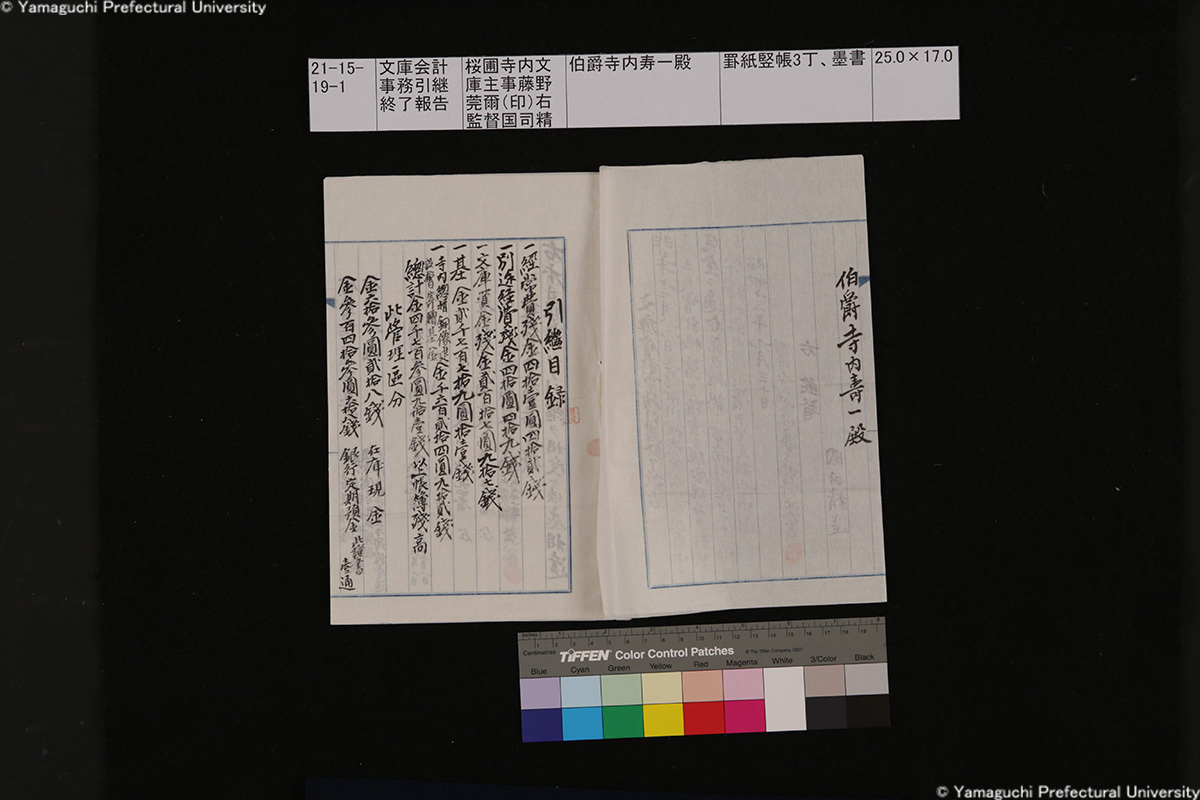 © Yamaguchi Prefectural University
21-15-19-1
文庫会計事務引継終了報告
桜圃寺内文庫主事藤野莞爾(印)右監督国司精
伯爵寺内寿一殿
罫紙竪帳3丁、墨書
25.0×17.0
伯爵寺内壽一殿
引繼目録
一經常費殘金四拾壹圓四拾貳錢
一別途経済残金四拾圓四拾九錢
一文庫資金殘金貳百拾七圓九拾七錢
一基金貳千七百七拾九圓拾壹錢
一寺内總督銅像建金千六百貳拾四圓九拾貳錢
總計金四千七百参圓九拾壹錢 以上帳簿残高
此管理區分
金参圓貳拾八錢 在庫現金
金参百四拾参圓錢 銀行定期預金 此證書壱通
inches
Centimetres
TIFFEN Color Control Patches
© The Tiffen Company, 2007
Blue Cyan Green Yellow Red Magenta White 3/Color Black
© Yamaguchi Prefectural University